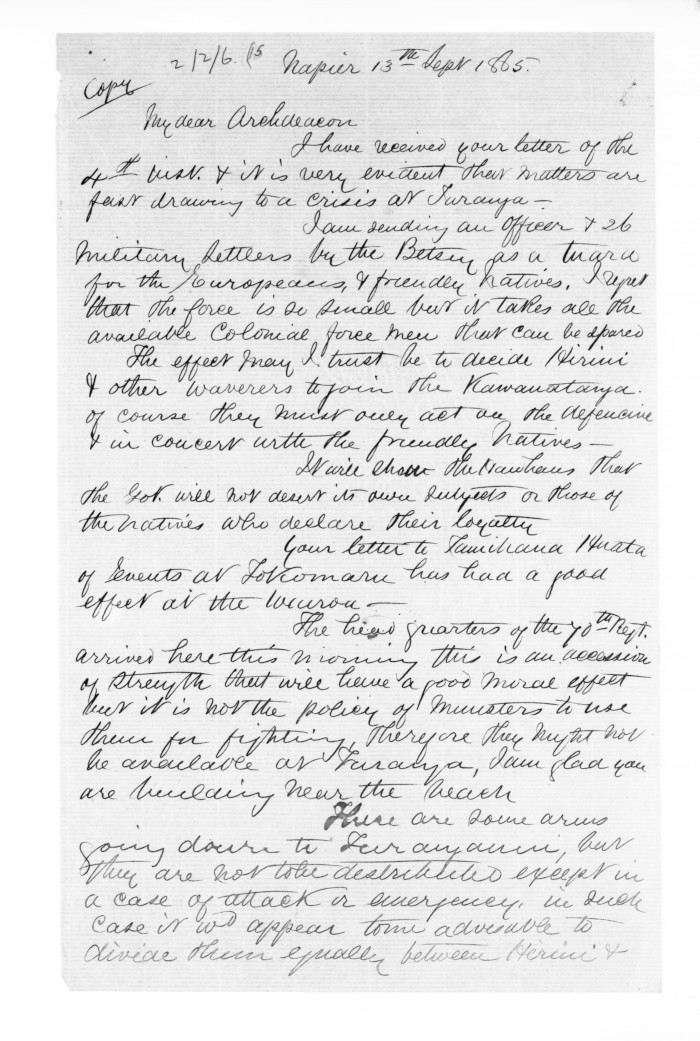 2/2/6. (15
Napier 13th Sept 1865.
Copy
My dear Archdeacon
I have received your letter of the
4th inst. & it is very evident that matters are
fast drawing to a crisis at Turanga —
I am sending an Officer & 26
Military Settlers by the Betsy as a guard
for the Europeans, & friendly Natives. I regret
that the force is so small but it takes all the
available Colonial force men that can be spared
The effect may I trust be to decide Hirini
& other waverers to join the Kawanatanga.
of course they must only act on the defensive
& in concert with the friendly Natives —
It will show the Hauhaus that
the Govt. will not desert its own subjects or those of
the natives who declare their loyalty
Your letter to Tamihana Huata
of Events at Tokomaru has had a good
effect at the Wairoa —
The head quarters of the 70th Regt.
arrived here this morning this is an accession
of strength that will have a good moral effect
but it is not the policy of Ministers to use
them for fighting, Therefore they might not
be available at Turanga, I am glad you
are building near the beach
There are some arms
going down to Turanganui, but
they are not to be distributed except in
a case of attack or emergency. in such
case it wd appear to me advisable to
divide them equally between Hirini &